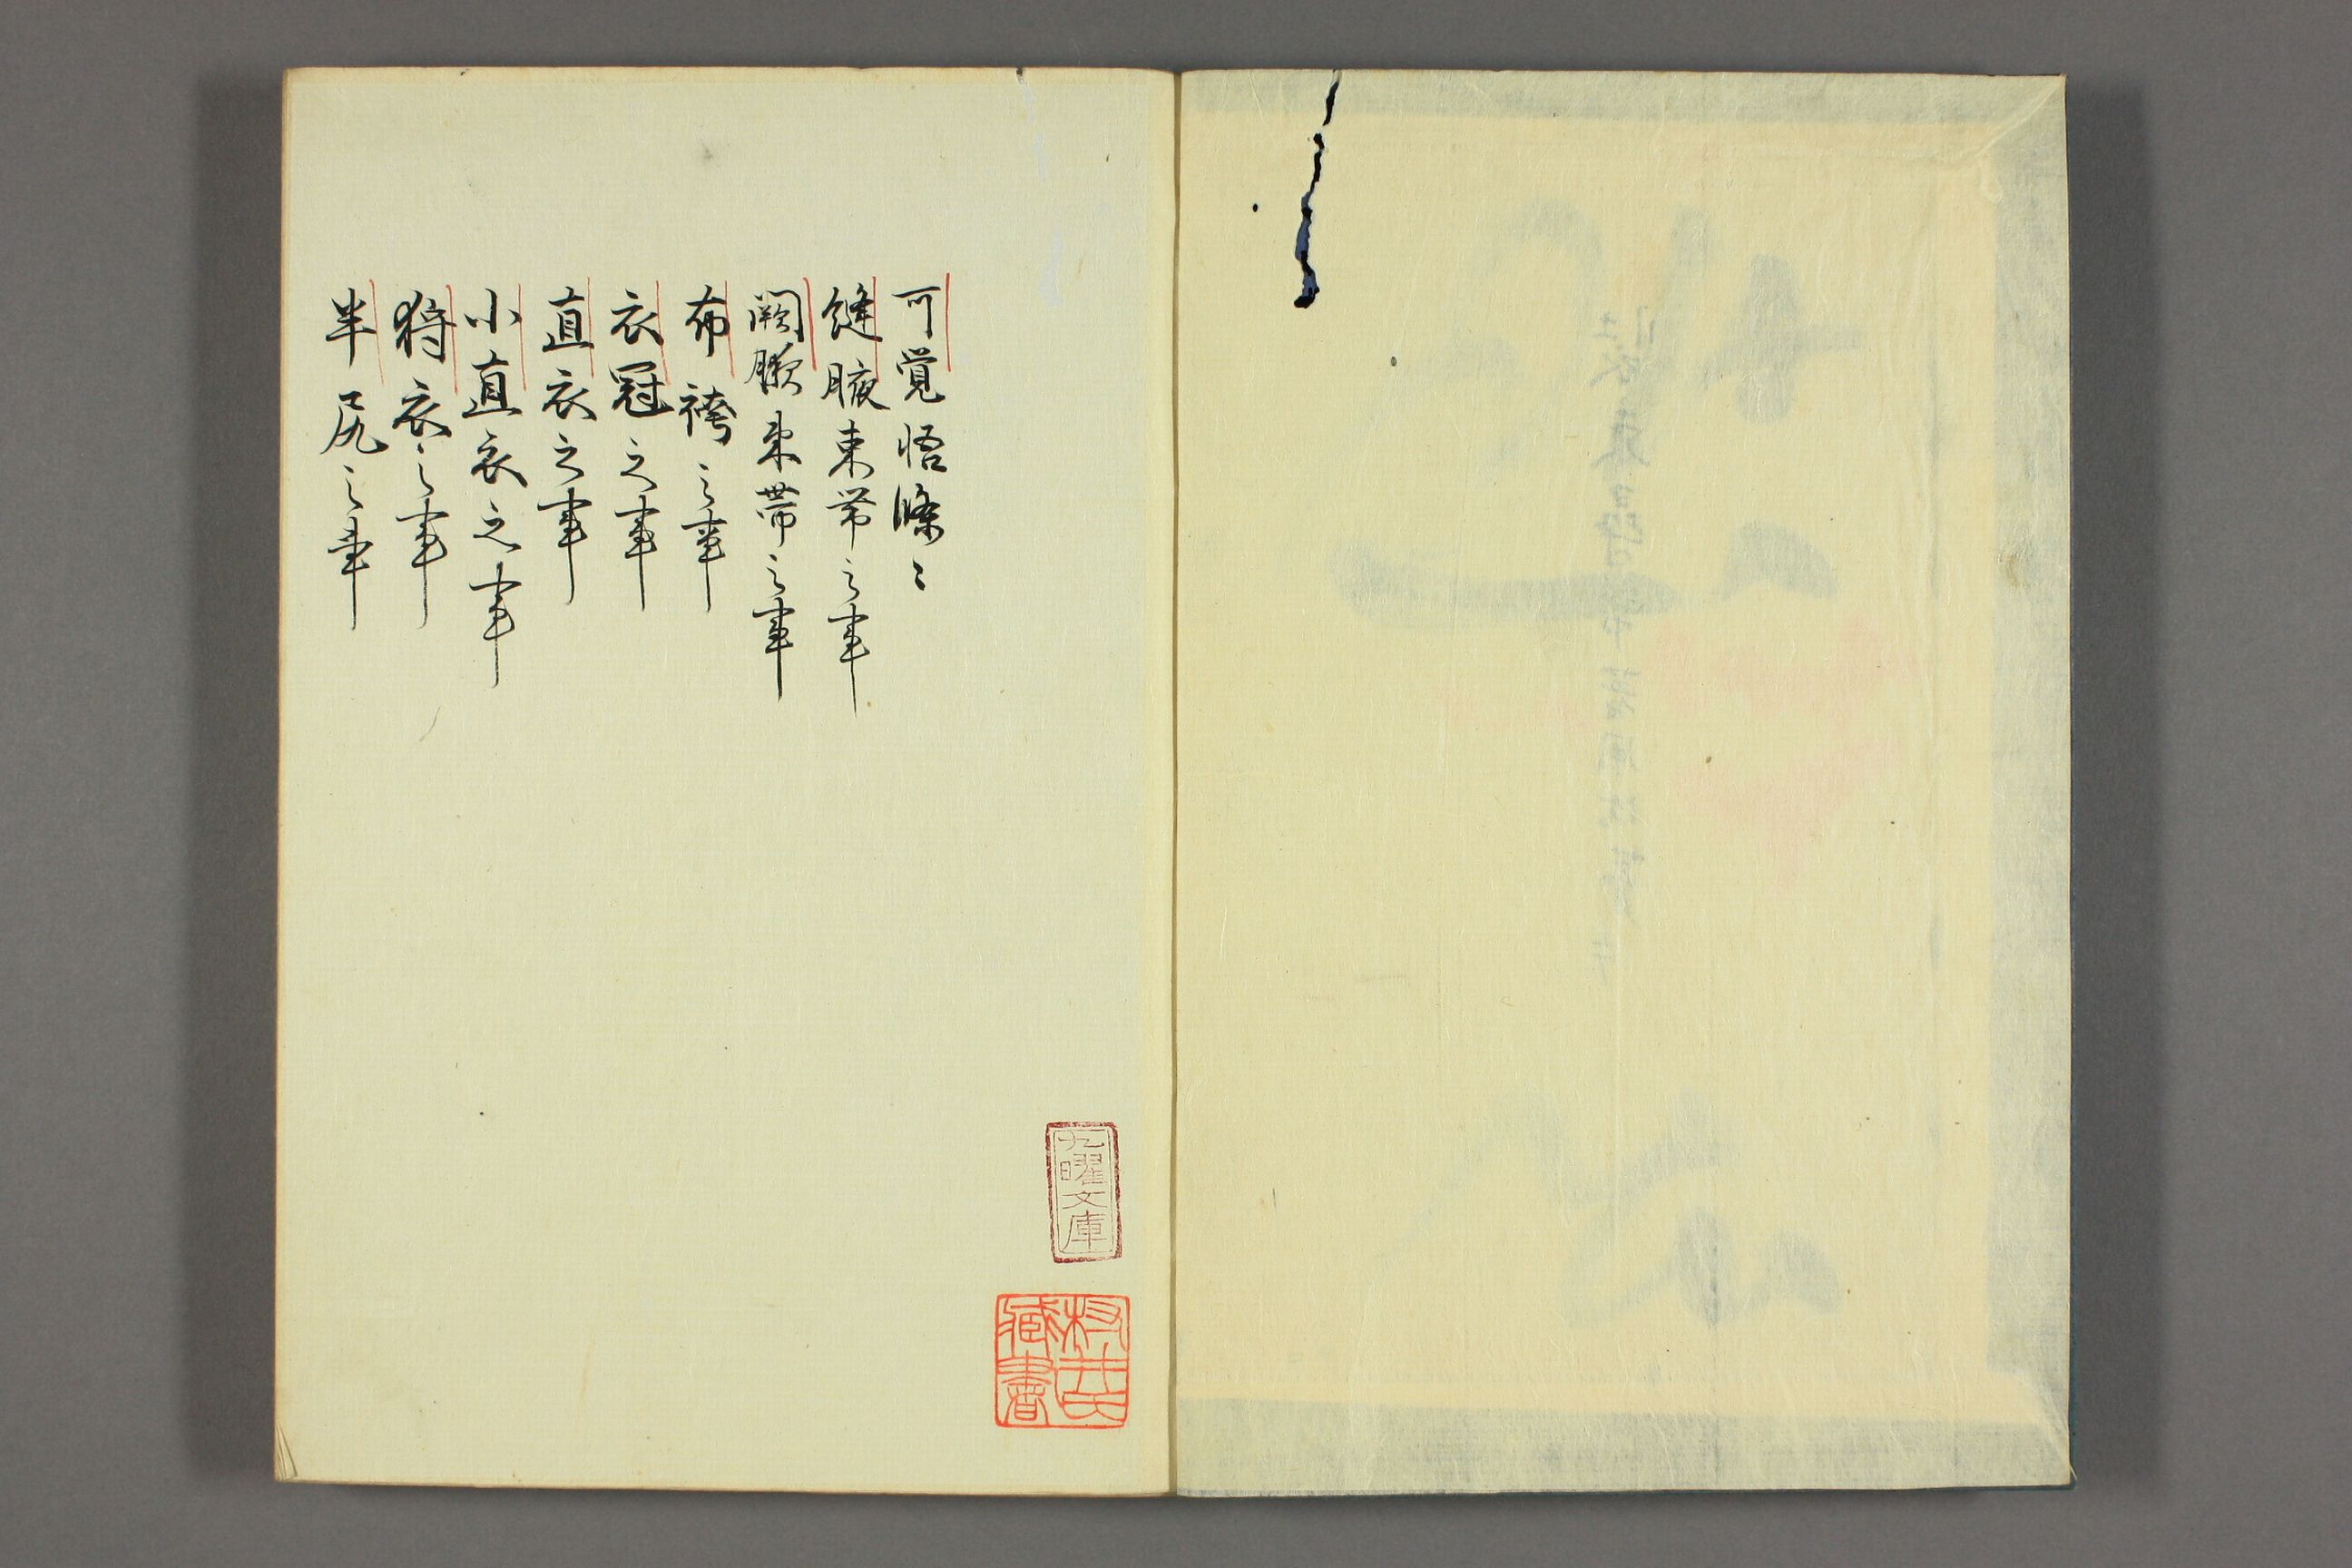 可覚悟條〻
縫腋束帯之事
闕腋束帯之事
布袴之事
衣冠之事
直衣之事
小直衣之事
狩衣之事
半尻之事
九曜文庫
藏書